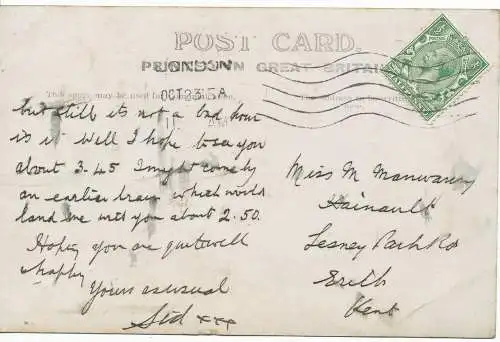 POST CARD.
LONDON
PRINTED IN GREAT BRITAIN
OCT 23 15
This space may be used for
The Address
but still its not a bad hour
is it Well I hope to see you
about 3-45 I might come by
an earlier train which would
land me with you about 2.50.
Hoping you are quite well
& happy
Yours as usual
Sid xxx
Miss M Manwaring
Hainault
Lesney Park Rd
Erith
Kent